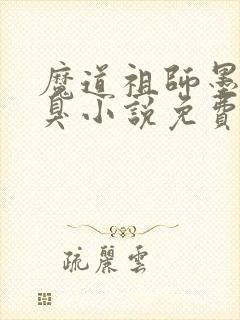 魔道祖師墨
臭小說免費
疏麗雲